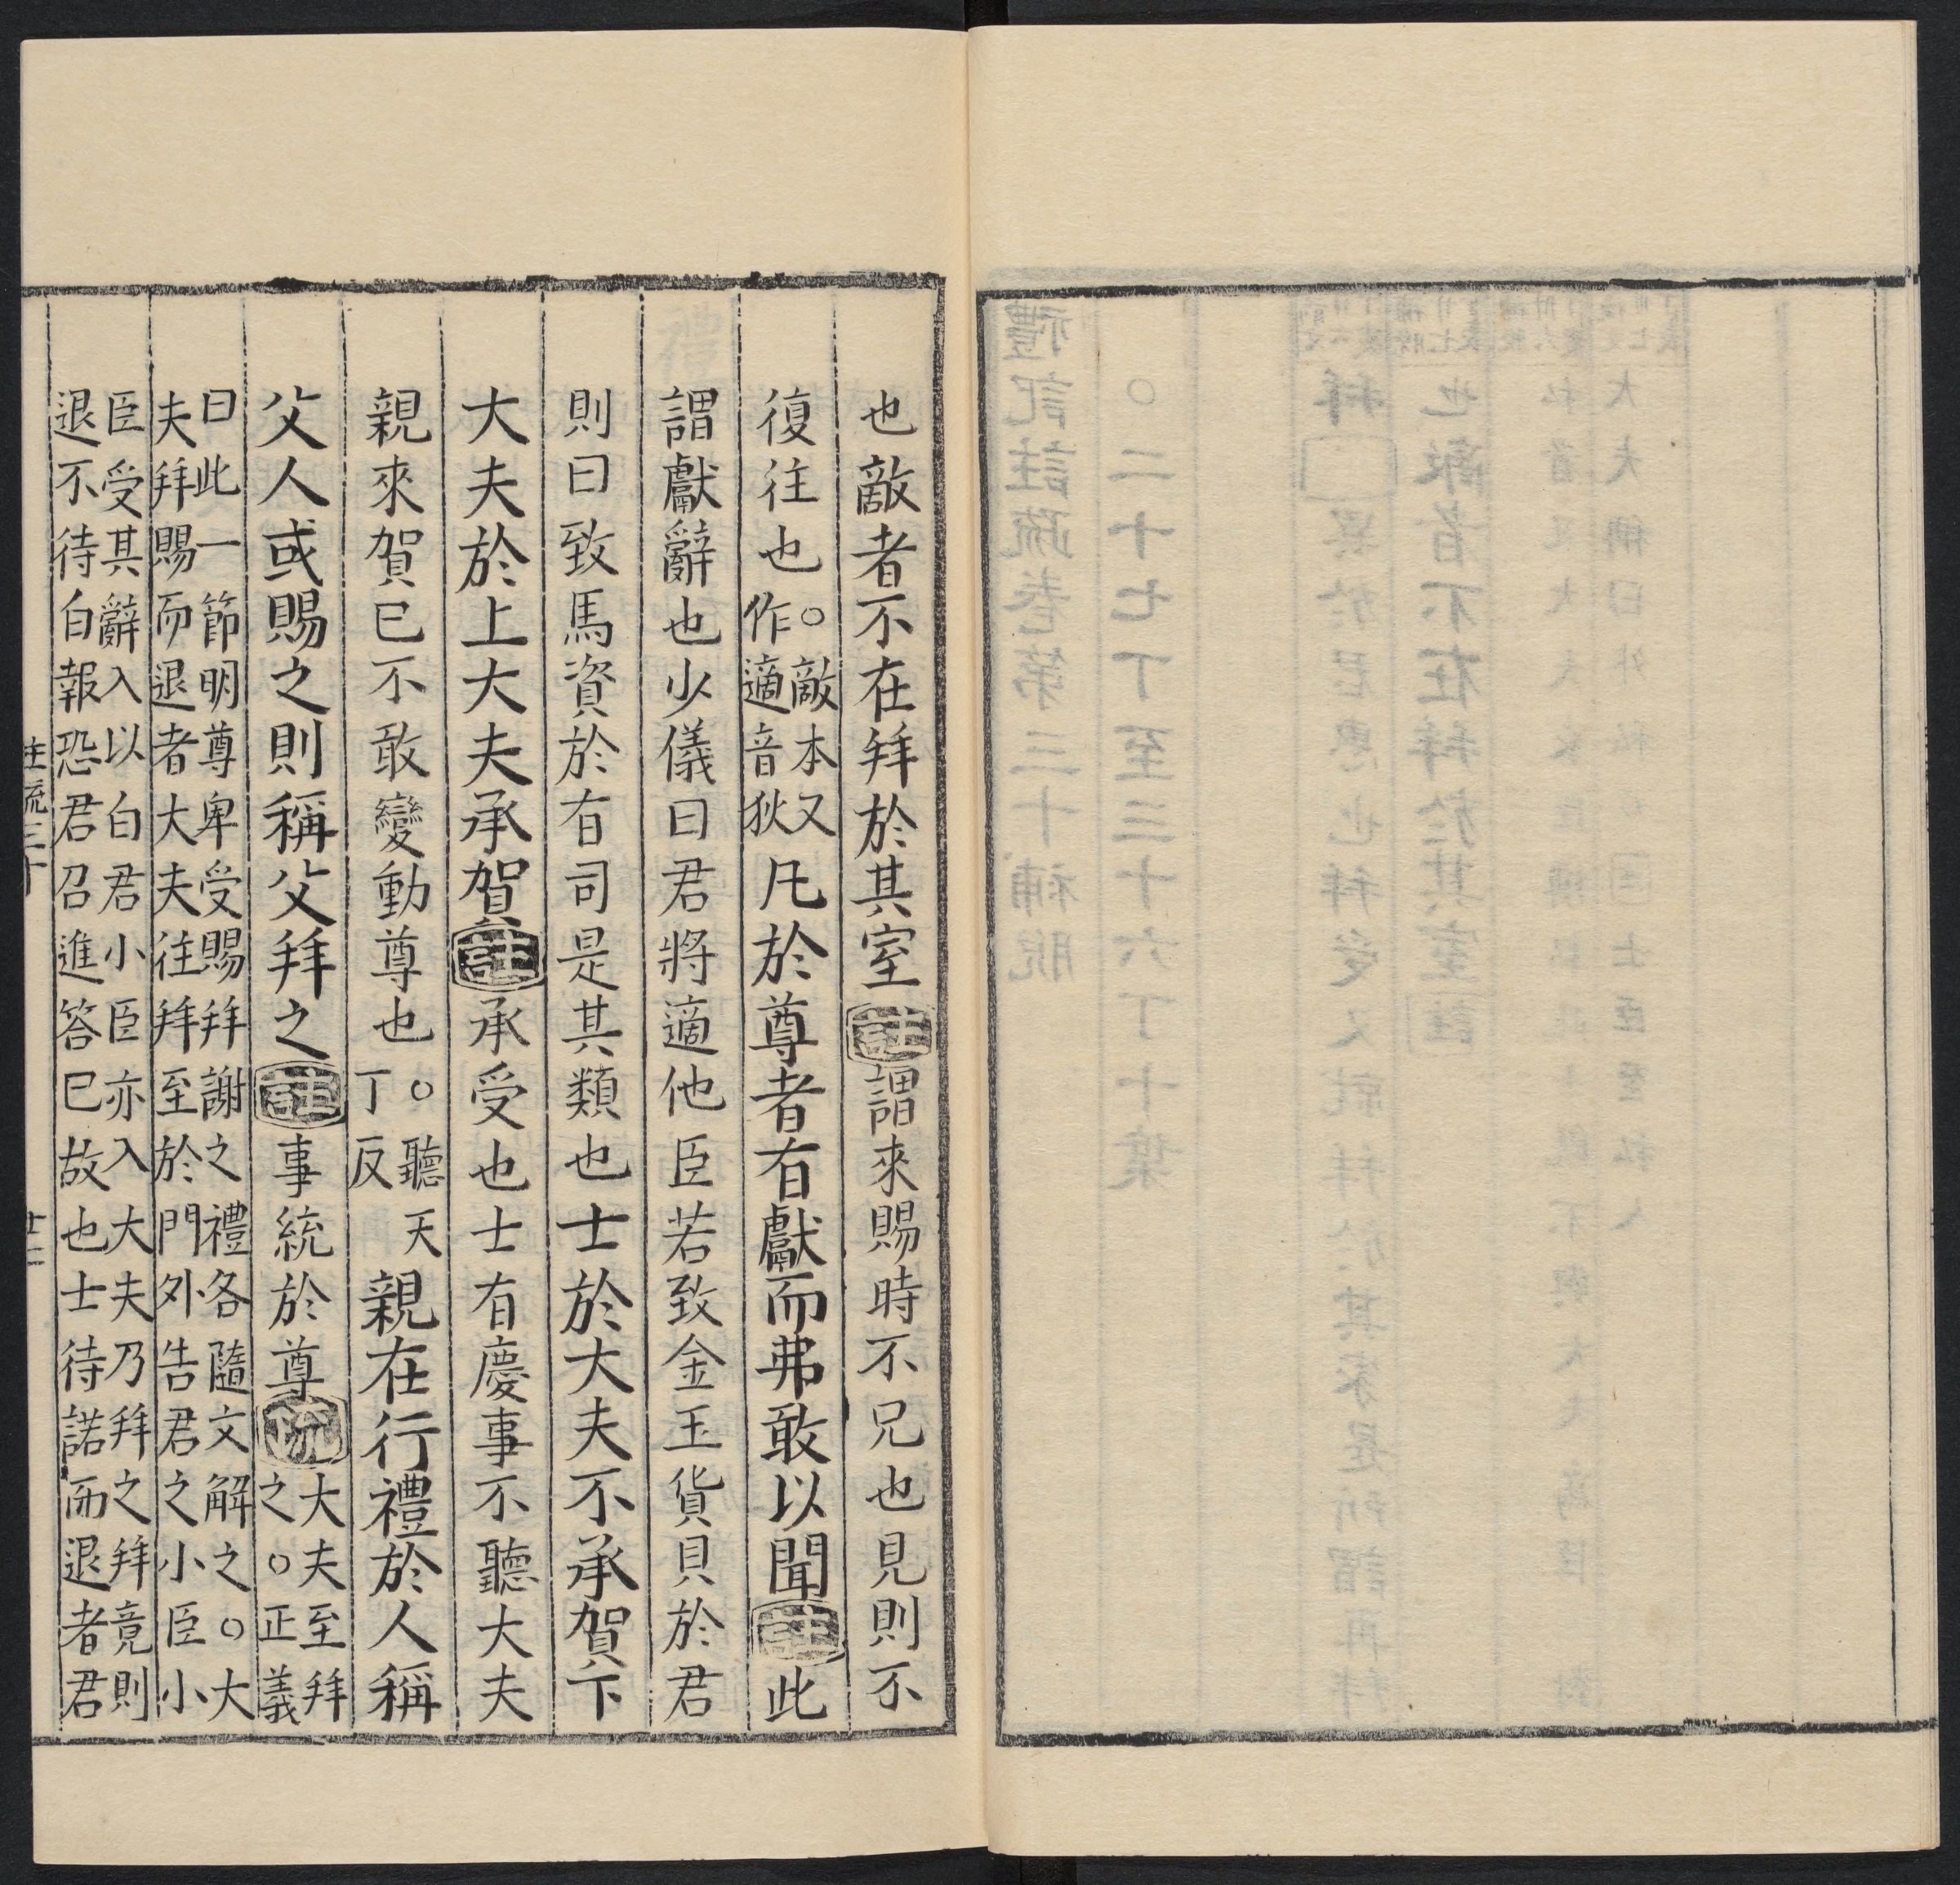 也敵者不在拜於其室註謂來賜時不兄也見則不
復往也○敵本又作適音狄凡於尊者有獻而弗敢以聞註此
謂獻辭也少儀曰君將適他臣若致金玉貨貝於君
則曰致馬資於有司是其類也士於大夫不承賀下
大夫於上大夫承賀註承受也士有慶事不聽大夫
親來賀已不敢變動尊也○聽天丁反親在行禮於人稱
父人或賜之則稱父拜之註事統於尊疏大夫至拜之○正義
曰此一節明尊卑受賜拜謝之禮各隨文解之○大
夫拜賜而退者大夫往拜至於門外告君之小臣小
臣受其辭入以白君小臣亦入大夫乃拜之拜竟則
退不待白報恐君召進答已故也士待諾而退者君